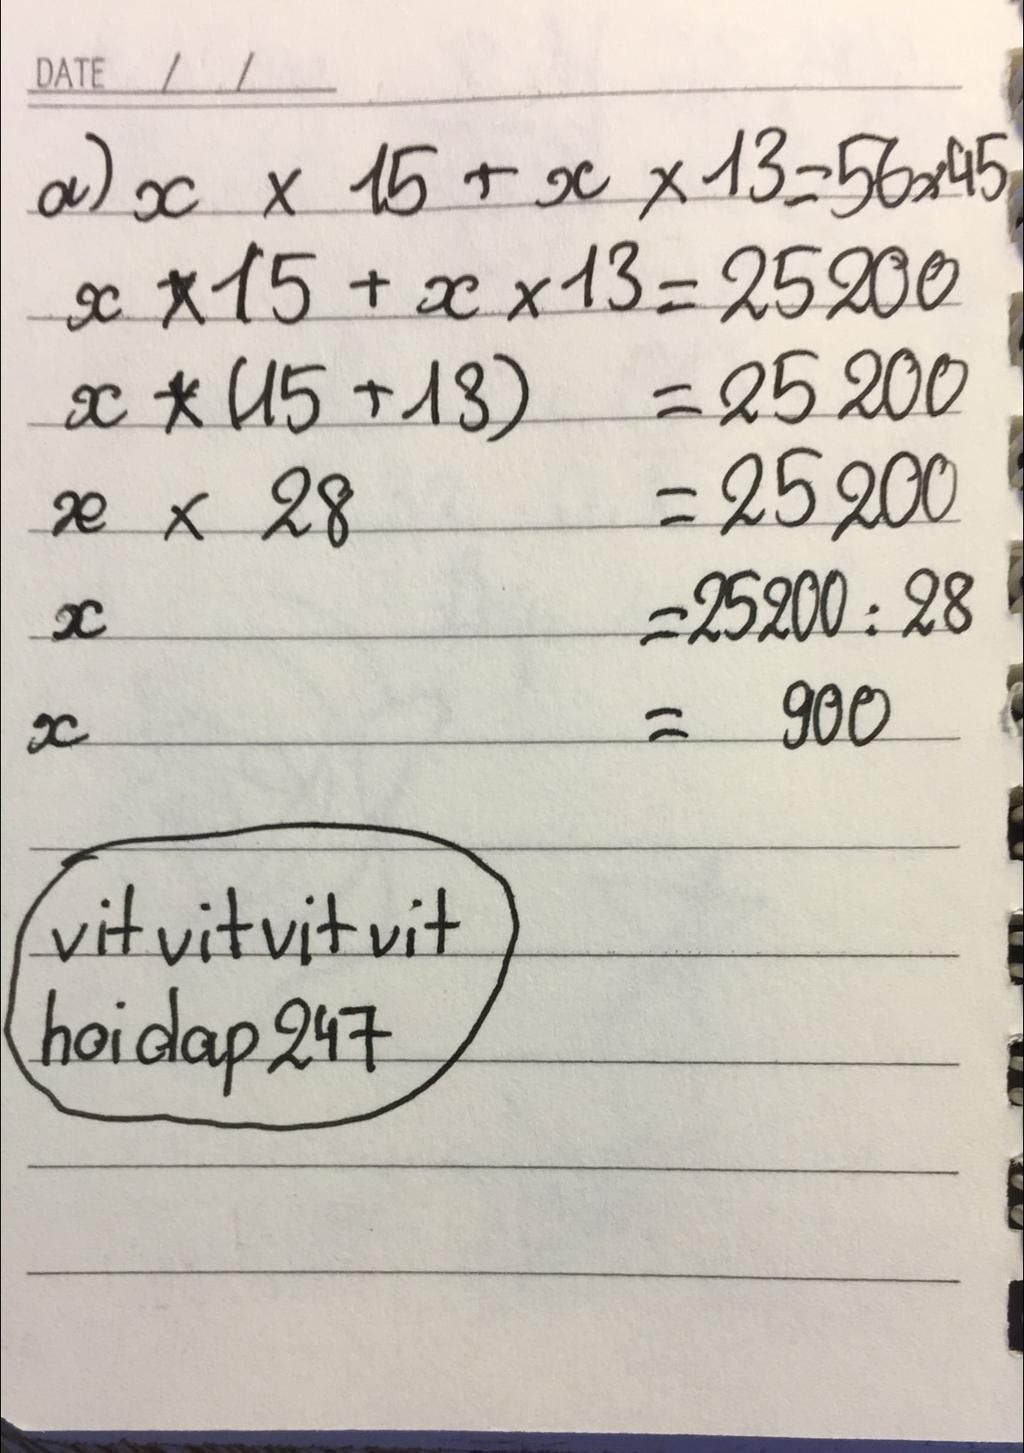 DATE / /
a) x × 15 + x × 13 = 56 × 45
x × 15 + x × 13 = 25200
x × (15 + 13) = 25200
x × 28 = 25200
x = 25200 : 28
x = 900
vitvitvitvit
hoidap247